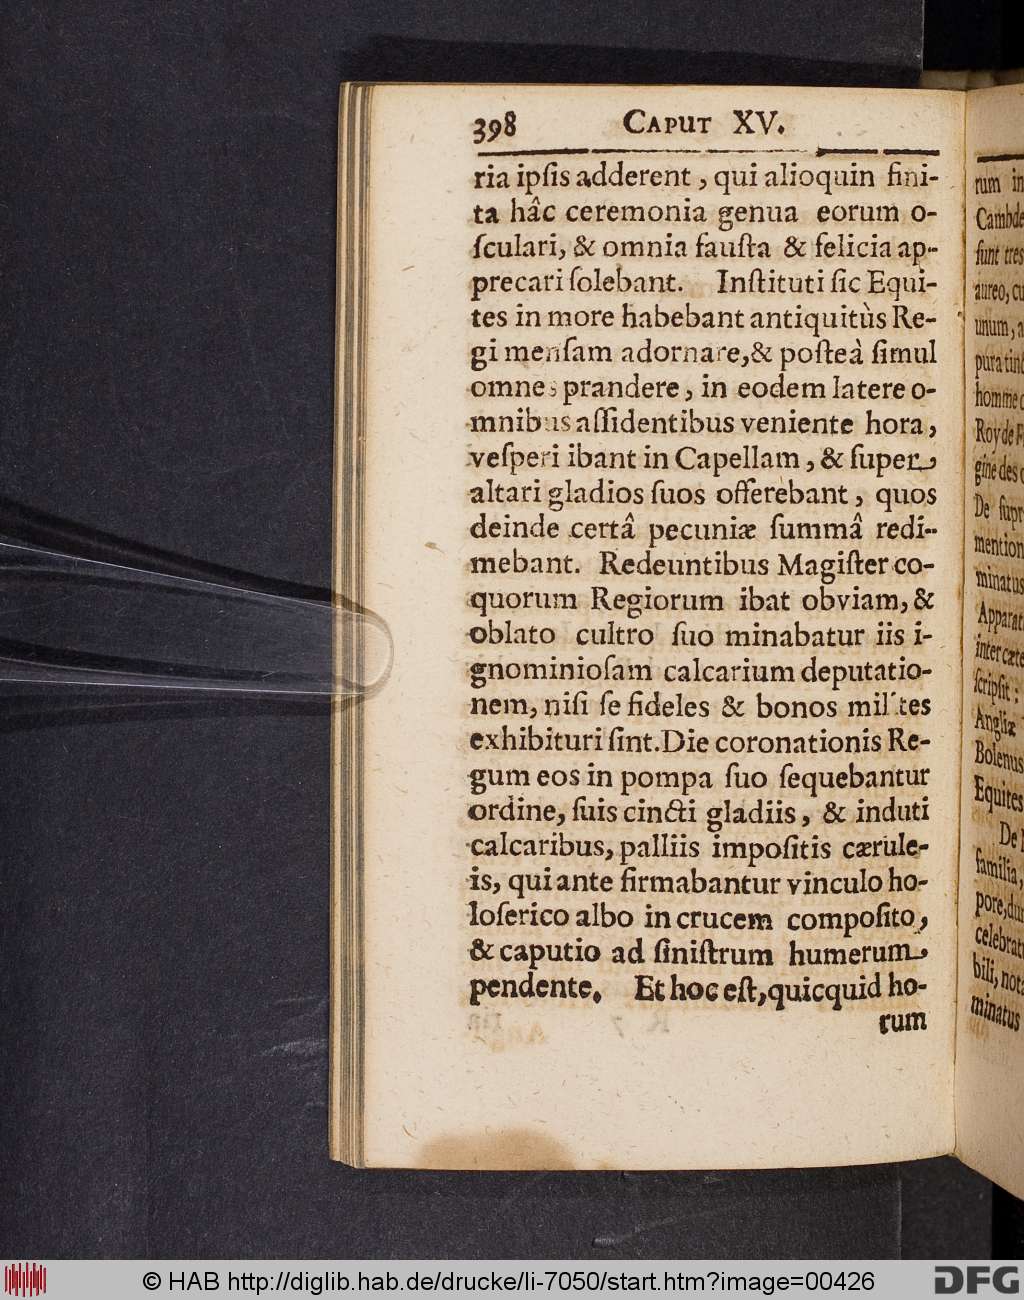 398 CAPUT XV.
ria ipſis adderent, qui alioquin fini-
ta hâc ceremonia genua eorum o-
ſculari, & omnia fauſta & felicia ap-
precari ſolebant. Inſtituti ſic Equi-
tes in more habebant antiquitùs Re-
gi menſam adornare, & poſteà ſimul
omnes prandere, in eodem latere o-
mnibus aſſidentibus veniente hora,
veſperi ibant in Capellam, & ſuper
altari gladios ſuos offerebant, quos
deinde certâ pecuniæ ſummâ redi-
mebant. Redeuntibus Magiſter co-
quorum Regiorum ibat obviam, &
oblato cultro ſuo minabatur iis i-
gnominioſam calcarium deputatio-
nem, niſi ſe fideles & bonos milites
exhibituri ſint. Die coronationis Re-
gum eos in pompa ſuo ſequebantur
ordine, ſuis cincti gladiis, & induti
calcaribus, palliis impoſitis cærule-
is, qui ante firmabantur vinculo ho-
loſerico albo in crucem compoſito,
& caputio ad ſiniſtrum humerum
pendente. Et hoc eſt, quicquid ho-
rum
rum in
ſunt tres
aureo, cu
unum, a
pura tinc
homme
Roy de
gine des
De ſupr
mention
minatus
Apparat
inter cæte
ſcripſit:
Angliæ
Bolenus
Equites
De
familia,
pore, du
celebrat
bili, not
minatus
© HAB http://diglib.hab.de/drucke/li-7050/start.htm?image=00426
DFG